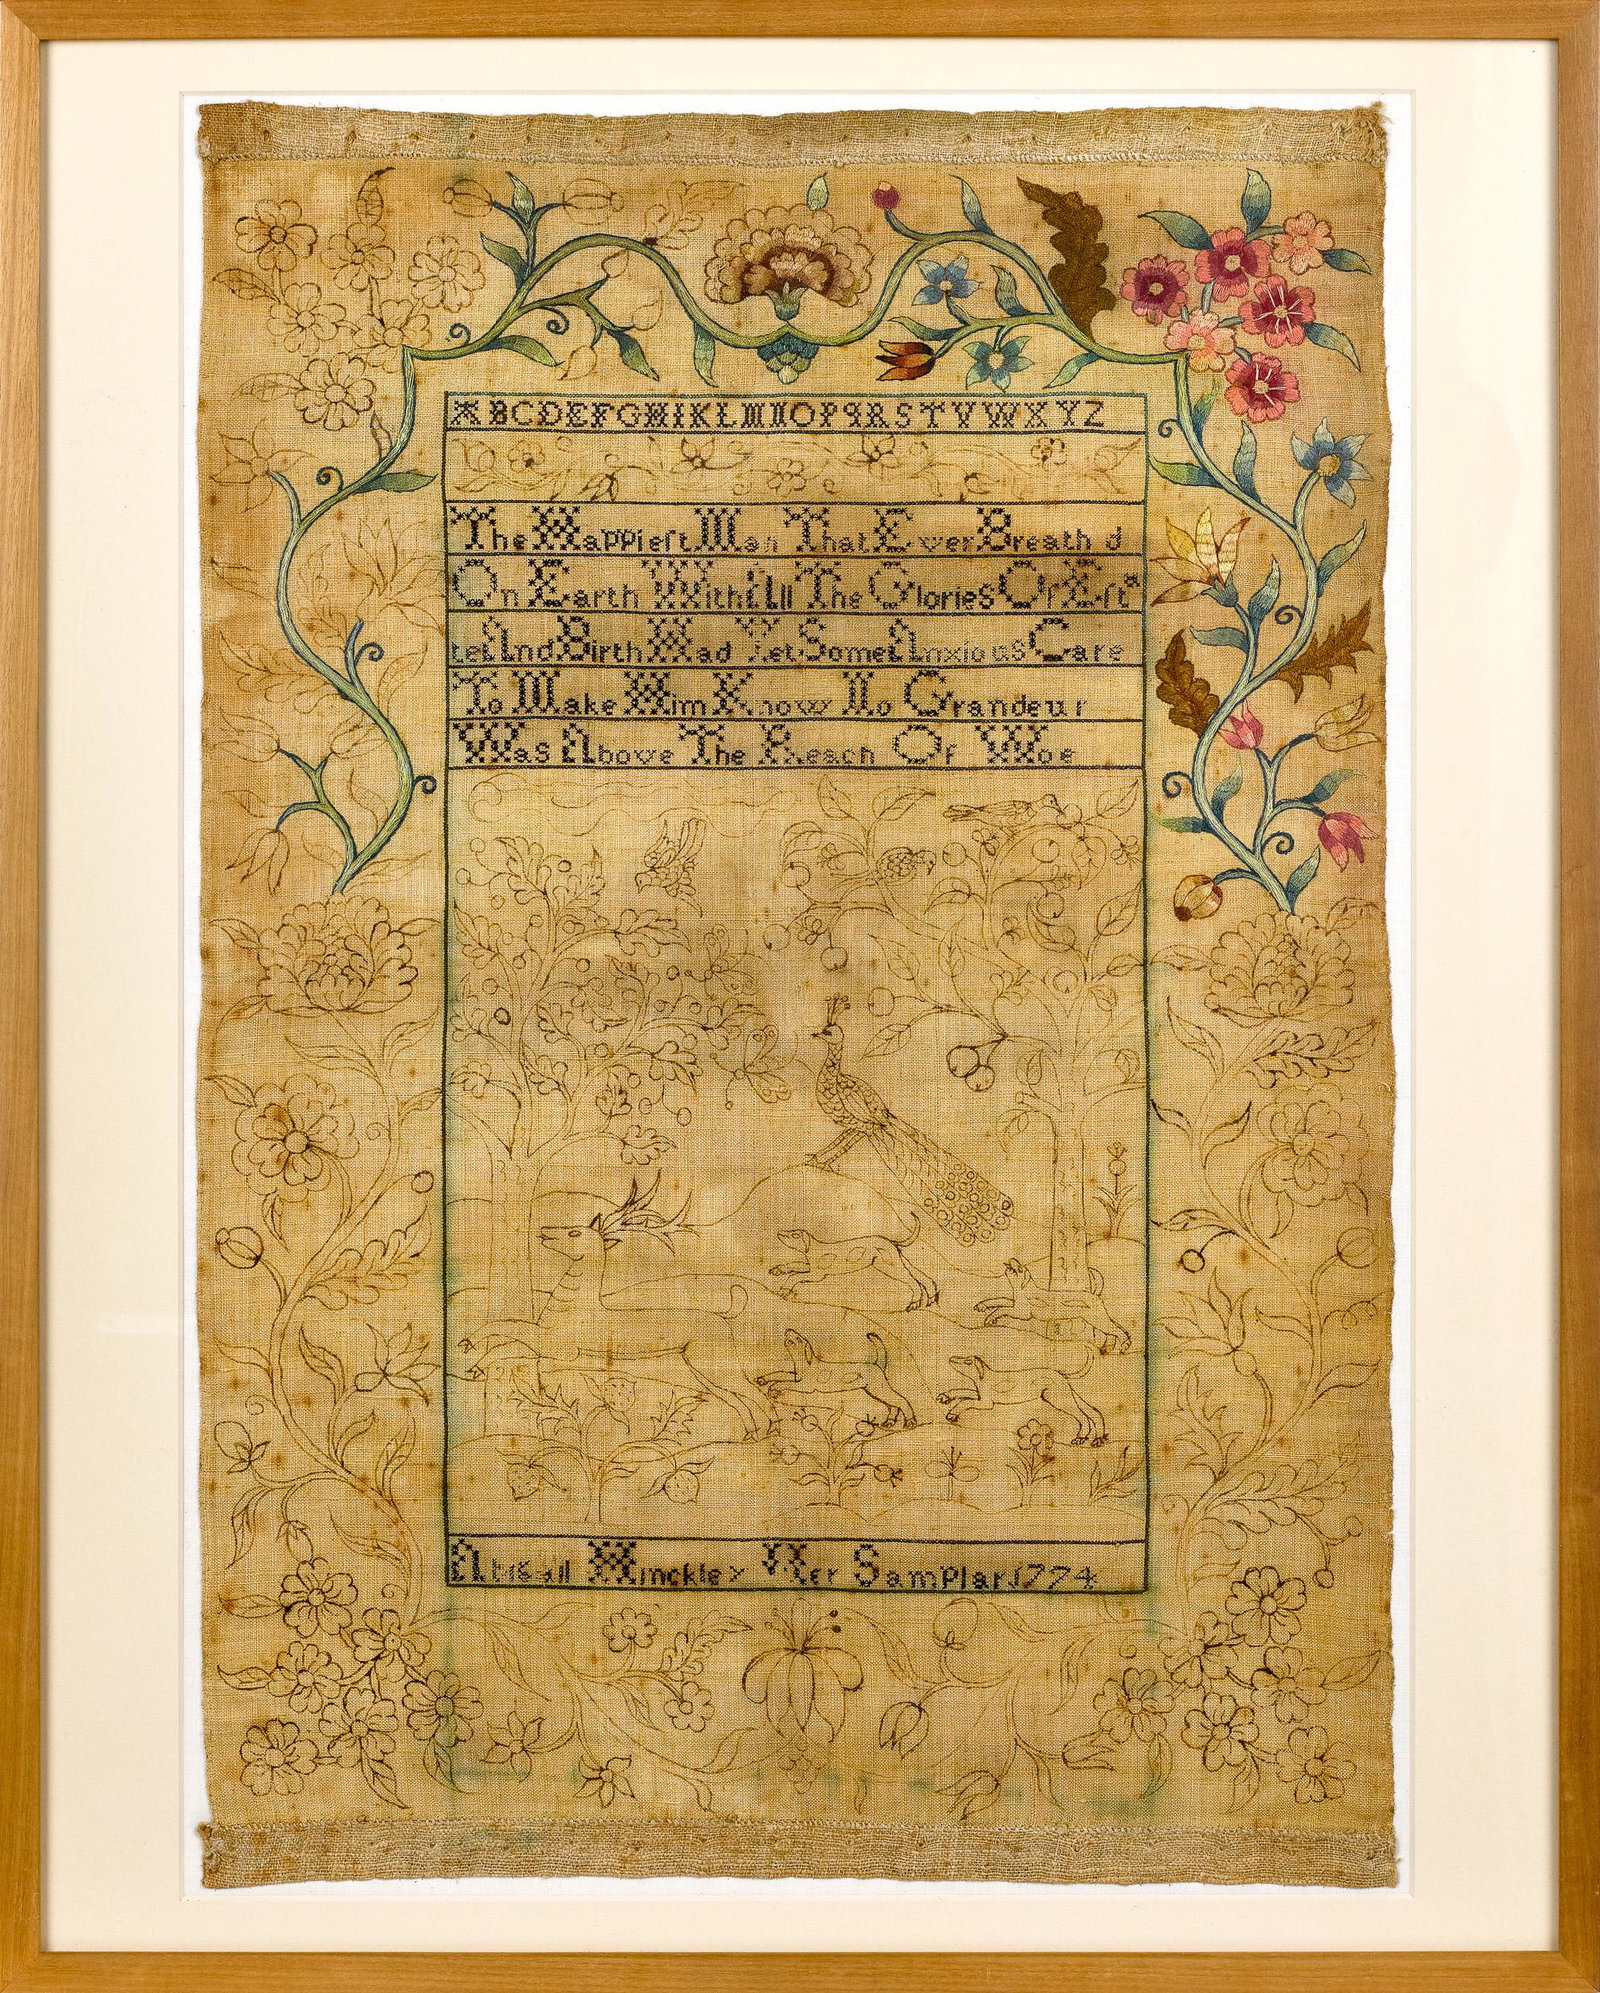 ABCDEFGHIKLMNOPQRSTVWXYZ
The Happieſt Man That Ever Breath d
On Earth With All The Glories Of Eſta
te And Birth Had Yet Some Anxious Care
To Make Him Know No Grandeur
Was Above The Reach Of Woe
Abigail Hinckley Her Samplar 1774